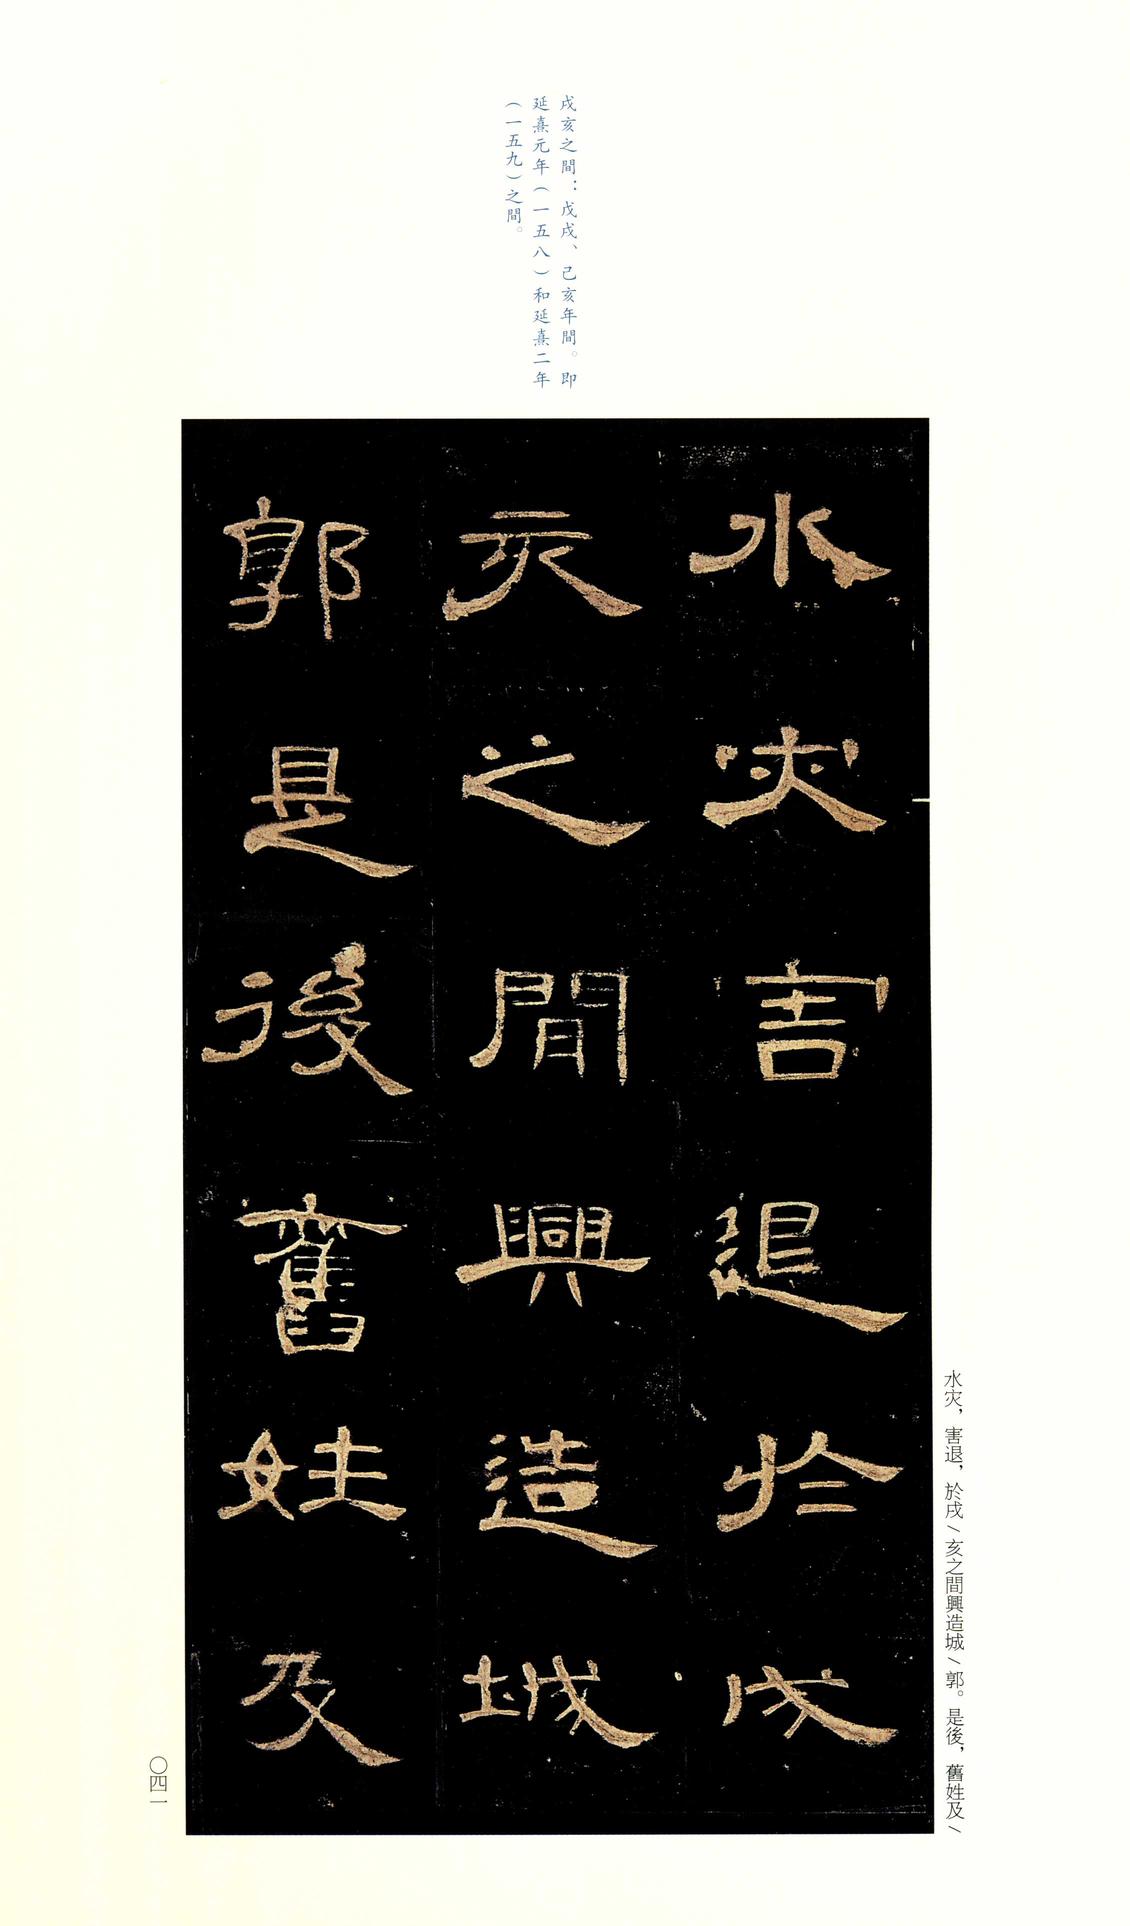 戌亥之間：戊戌、己亥年間。即
延熹元年（一五八）和延熹二年
（一五九）之間。
水灾害退於戌
亥之間興造城
郭是後舊姓及
水灾，害退，於戌／亥之間興造城／郭。是後，舊姓及／
〇四一